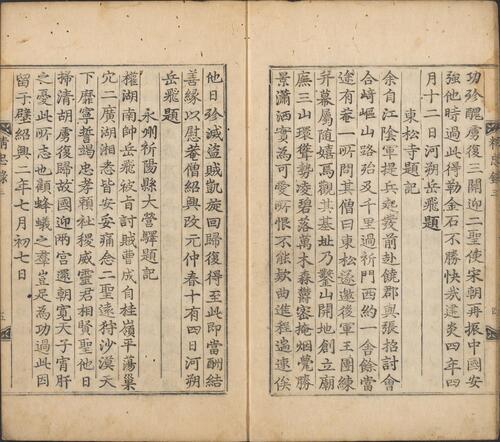 功殄醜虜復三關迎二聖使宋朝再振中國安
強他時過此得勒金石不勝快哉建炎四年四
月十二日河朔岳飛題
東松寺題記
余自江陰軍提兵起發前赴饒郡與張招討會
合崎嶇山路殆及千里過祁門西約一舍餘當
途有菴一所問其僧曰東松遂邀後軍王團練
幷幕屬隨嬉焉觀其基址乃鑿山開地創立廊
廡三山環聳勢凌碧落萬木森鬱密掩烟甍勝
景瀟洒實爲可愛所恨不能欵曲進程遄速俟
他日殄滅盜賊凱旋回歸復得至此即當酬結
善緣以慰菴僧紹興改元仲春十有四日河朔
岳飛題
永州祈陽縣大營驛題記
權湖南帥岳飛被旨討賊曹成自桂嶺平蕩巢
穴二廣湖湘悉皆安妥痛念二聖遠狩沙漠天
下靡寧誓竭忠孝賴社稷威靈君相賢聖他日
掃清胡虜復歸故國迎兩宮還朝寛天子宵旰
之憂此所志也顧蜂蟻之羣豈足爲功過此因
留于壁紹興二年七月初七日
精忠錄 三
五